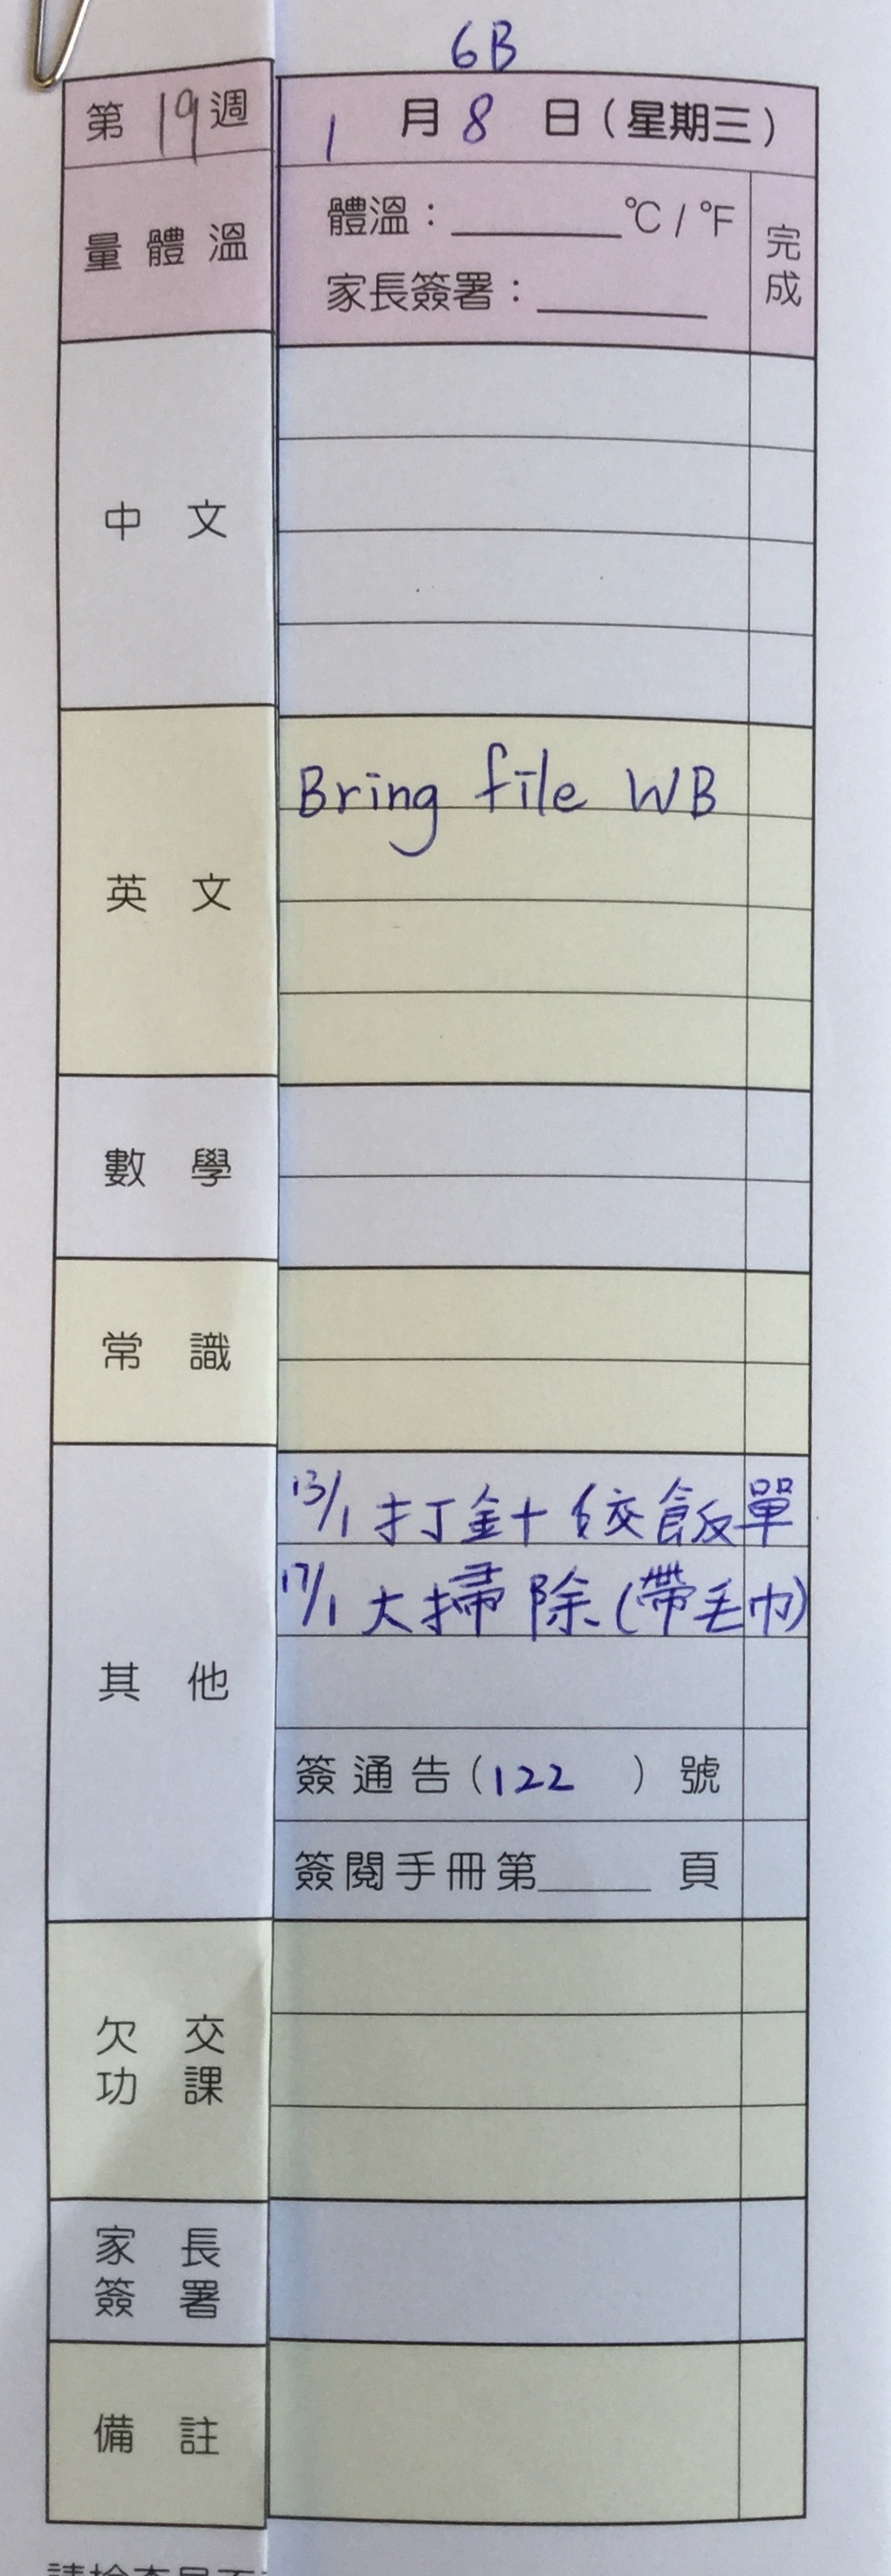 6B
第 19 週
1 月 8 日（星期三）
量體溫
體溫：______°C / °F
家長簽署：______
完成
中文
英文
Bring file WB
數學
常識
其他
13/1 打針＋交飯單
17/1 大掃除(帶毛巾)
簽通告(122 ) 號
簽閱手冊第_____ 頁
欠交
功課
家長
簽署
備註